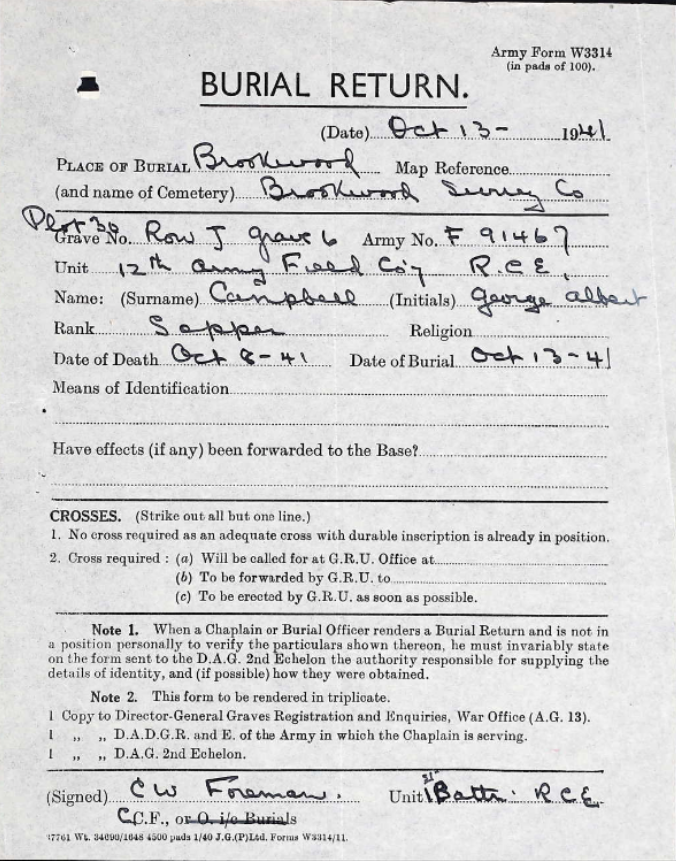 Army Form W3314
(in pads of 100).
BURIAL RETURN.
(Date) Oct 13 - 1941
PLACE OF BURIAL Brookwood Map Reference
(and name of Cemetery) Brookwood Surrey Co
Plot 30
Grave No. Row J grave 6 Army No. F 91467
Unit 12th Army Field Co'y R.C.E.
Name: (Surname) Campbell (Initials) George Albert
Rank Sapper Religion
Date of Death Oct 8-41 Date of Burial Oct 13-41
Means of Identification
Have effects (if any) been forwarded to the Base?
CROSSES. (Strike out all but one line.)
1. No cross required as an adequate cross with durable inscription is already in position.
2. Cross required : (a) Will be called for at G.R.U. Office at
(b) To be forwarded by G.R.U. to
(c) To be erected by G.R.U. as soon as possible.
Note 1. When a Chaplain or Burial Officer renders a Burial Return and is not in
a position personally to verify the particulars shown thereon, he must invariably state
on the form sent to the D.A.G. 2nd Echelon the authority responsible for supplying the
details of identity, and (if possible) how they were obtained.
Note 2. This form to be rendered in triplicate.
1 Copy to Director-General Graves Registration and Enquiries, War Office (A.G. 13).
1 ,, ,, D.A.D.G.R. and E. of the Army in which the Chaplain is serving.
1 ,, ,, D.A.G. 2nd Echelon.
(Signed) C W Foreman. Unit 1st Battn. R.C.E.
C.C.F., or O. i/c Burials
Wt. 34690/1648 4500 pads 1/40 J.G.(P)Ltd. Forms W3314/11.